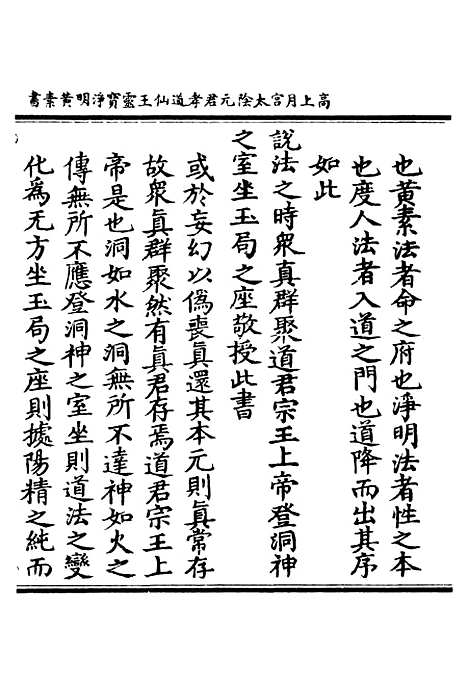 高上月宮太陰元君孝道仙王靈寶淨明黃素書
也黄素法者命之府也淨明法者性之本
也度人法者入道之門也道降而出其序
如此
說法之時衆真群聚道君宗王上帝登洞神
之室坐玉局之座敬授此書
或於妄幻以偽喪真還其本元則真常存
故衆真群聚然有真君存焉道君宗王上
帝是也洞如水之洞無所不達神如火之
傳無所不應登洞神之室坐則道法之變
化為无方坐玉局之座則據陽精之純而